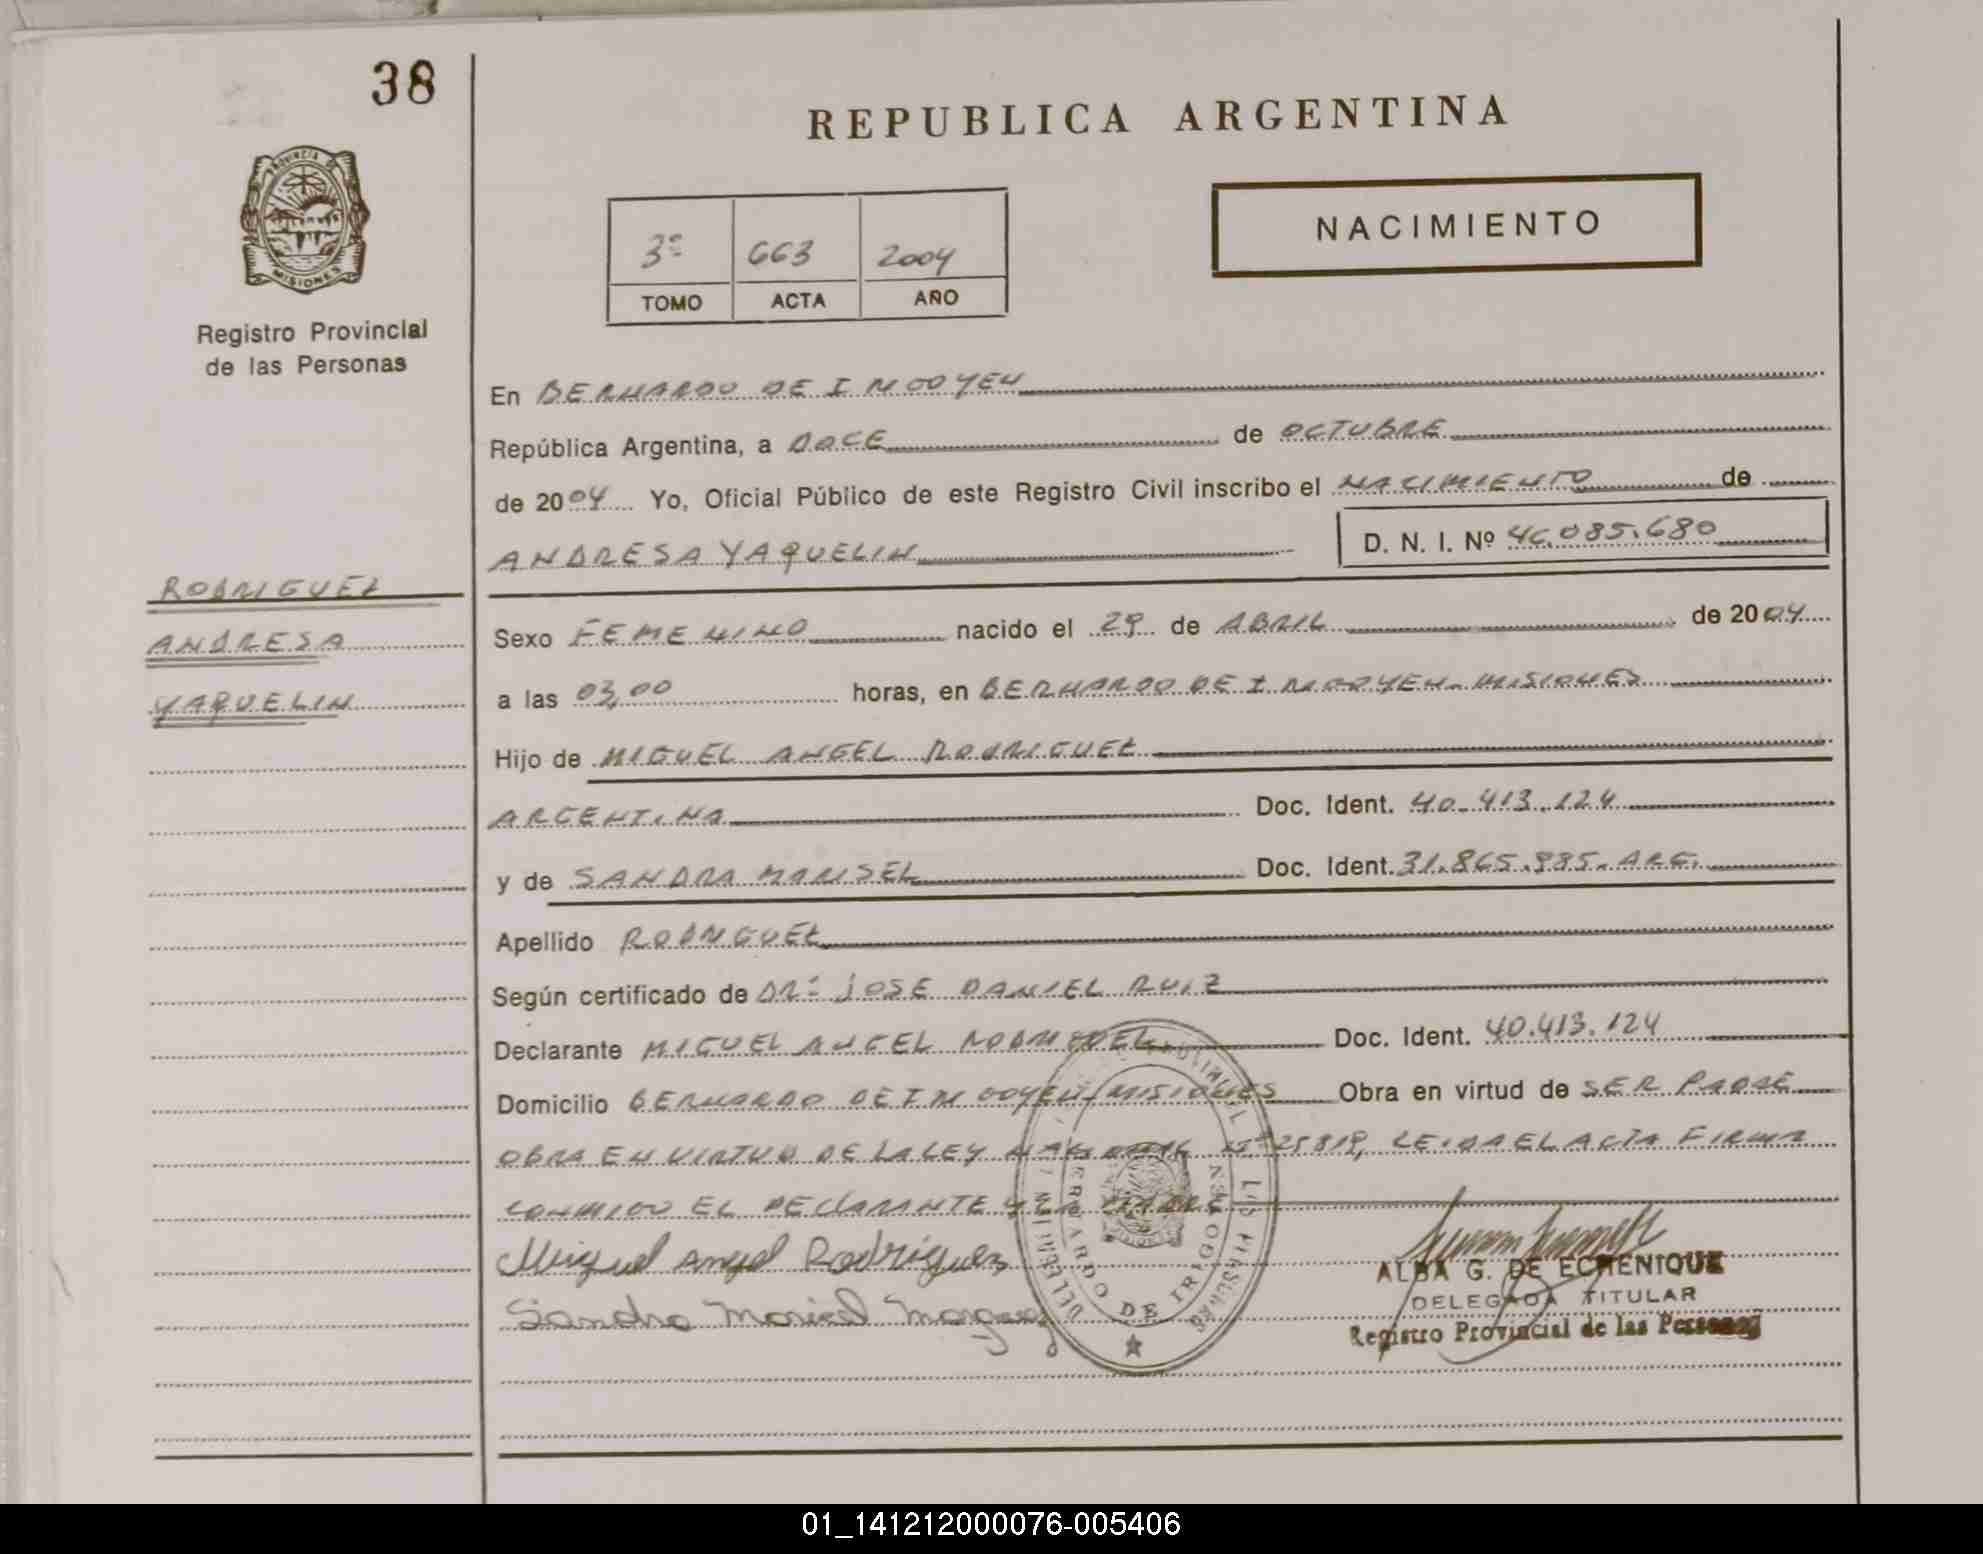 38
REPUBLICA ARGENTINA
PROVINCIA DE
MISIONES
Registro Provincial
de las Personas
3º 663 2004
TOMO ACTA AÑO
NACIMIENTO
En BERNARDO DE IRIGOYEN
República Argentina, a DOCE de OCTUBRE
de 2004 Yo, Oficial Público de este Registro Civil inscribo el NACIMIENTO de
ANDRESA YAQUELIN D. N. I. Nº 46.085.680
RODRIGUEZ
ANDRESA
YAQUELIN
Sexo FEMENINO nacido el 29 de ABRIL de 2004
a las 03,00 horas, en BERNARDO DE IRIGOYEN-MISIONES
Hijo de MIGUEL ANGEL RODRIGUEZ
ARGENTINA Doc. Ident. 40.413.124
y de SANDRA MARISEL Doc. Ident. 31.865.985. ARG.
Apellido RODRIGUEZ
Según certificado de DRº JOSE DANIEL RUIZ
Declarante MIGUEL ANGEL RODRIGUEZ Doc. Ident. 40.413.124
Domicilio BERNARDO DE IRIGOYEN-MISIONES Obra en virtud de SER PADRE
OBRA EN VIRTUD DE LA LEY NACIONAL Nº 25819, LEIDA EL ACTA FIRMA
CONMIGO EL DECLARANTE Y LA MADRE
Miguel Angel Rodriguez
Sandra Marisel
BERNARDO DE IRIGOYEN
ALBA G. DE ECHENIQUE
DELEGADA TITULAR
Registro Provincial de las Personas
01_141212000076-005406